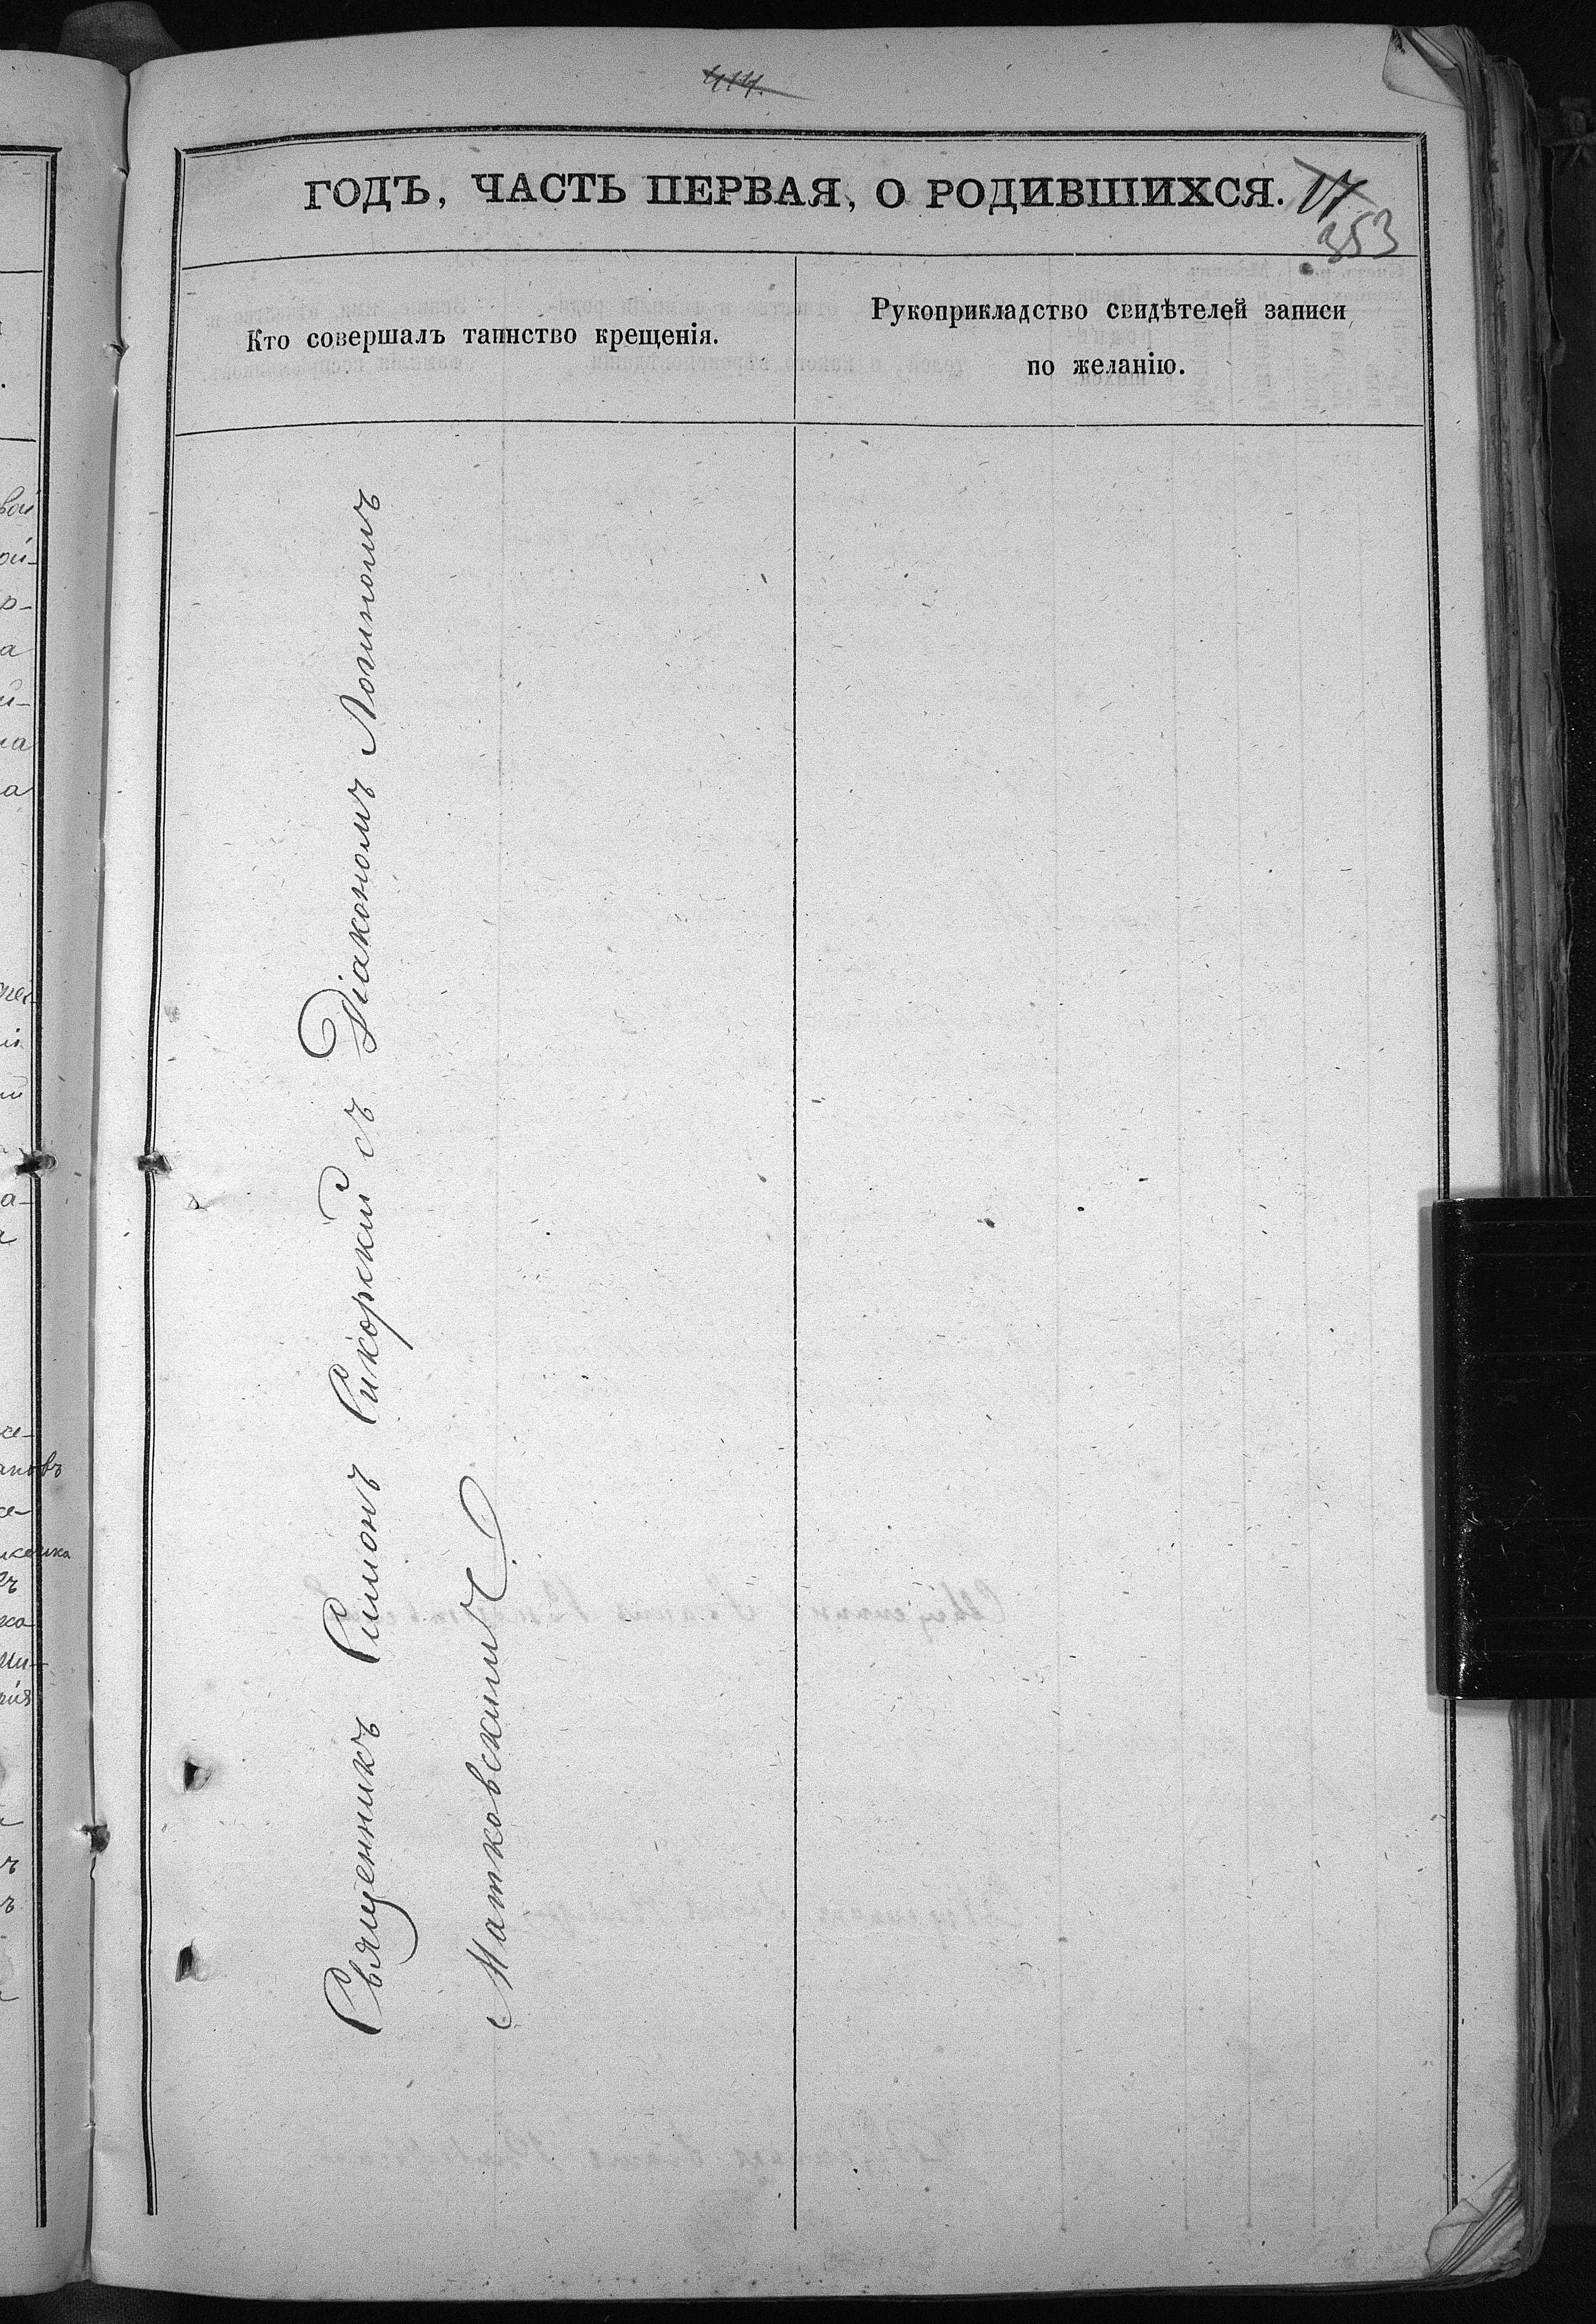 414.
ГОДЪ, ЧАСТЬ ПЕРВАЯ, О РОДИВШИХСЯ. 17
353
Кто совершалъ таинство крещенія.
Рукоприкладство свидѣтелей записи
по желанію.
Священникъ Симонъ Сикорскій съ Діакономъ Логиномъ
Матковскимъ